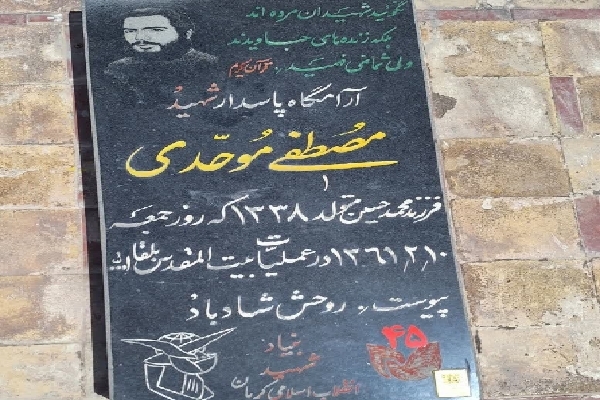 نگوئید شهیدان مرده اند
بلکه زنده های جاویدند
ولی شما نمی فهمید. قرآن کریم
آرامگاه پاسدار شهید
مصطفی موحّدی
فرزند محمد حسین تولد ۱۳۳۸ که روز جمعه
۱۳۶۱٫۲٫۱۰ در عملیات بیت المقدس بلقاءالله
پیوست. روحش شاد باد
بنیاد
شهید
انقلاب اسلامی کرمان
۴۵